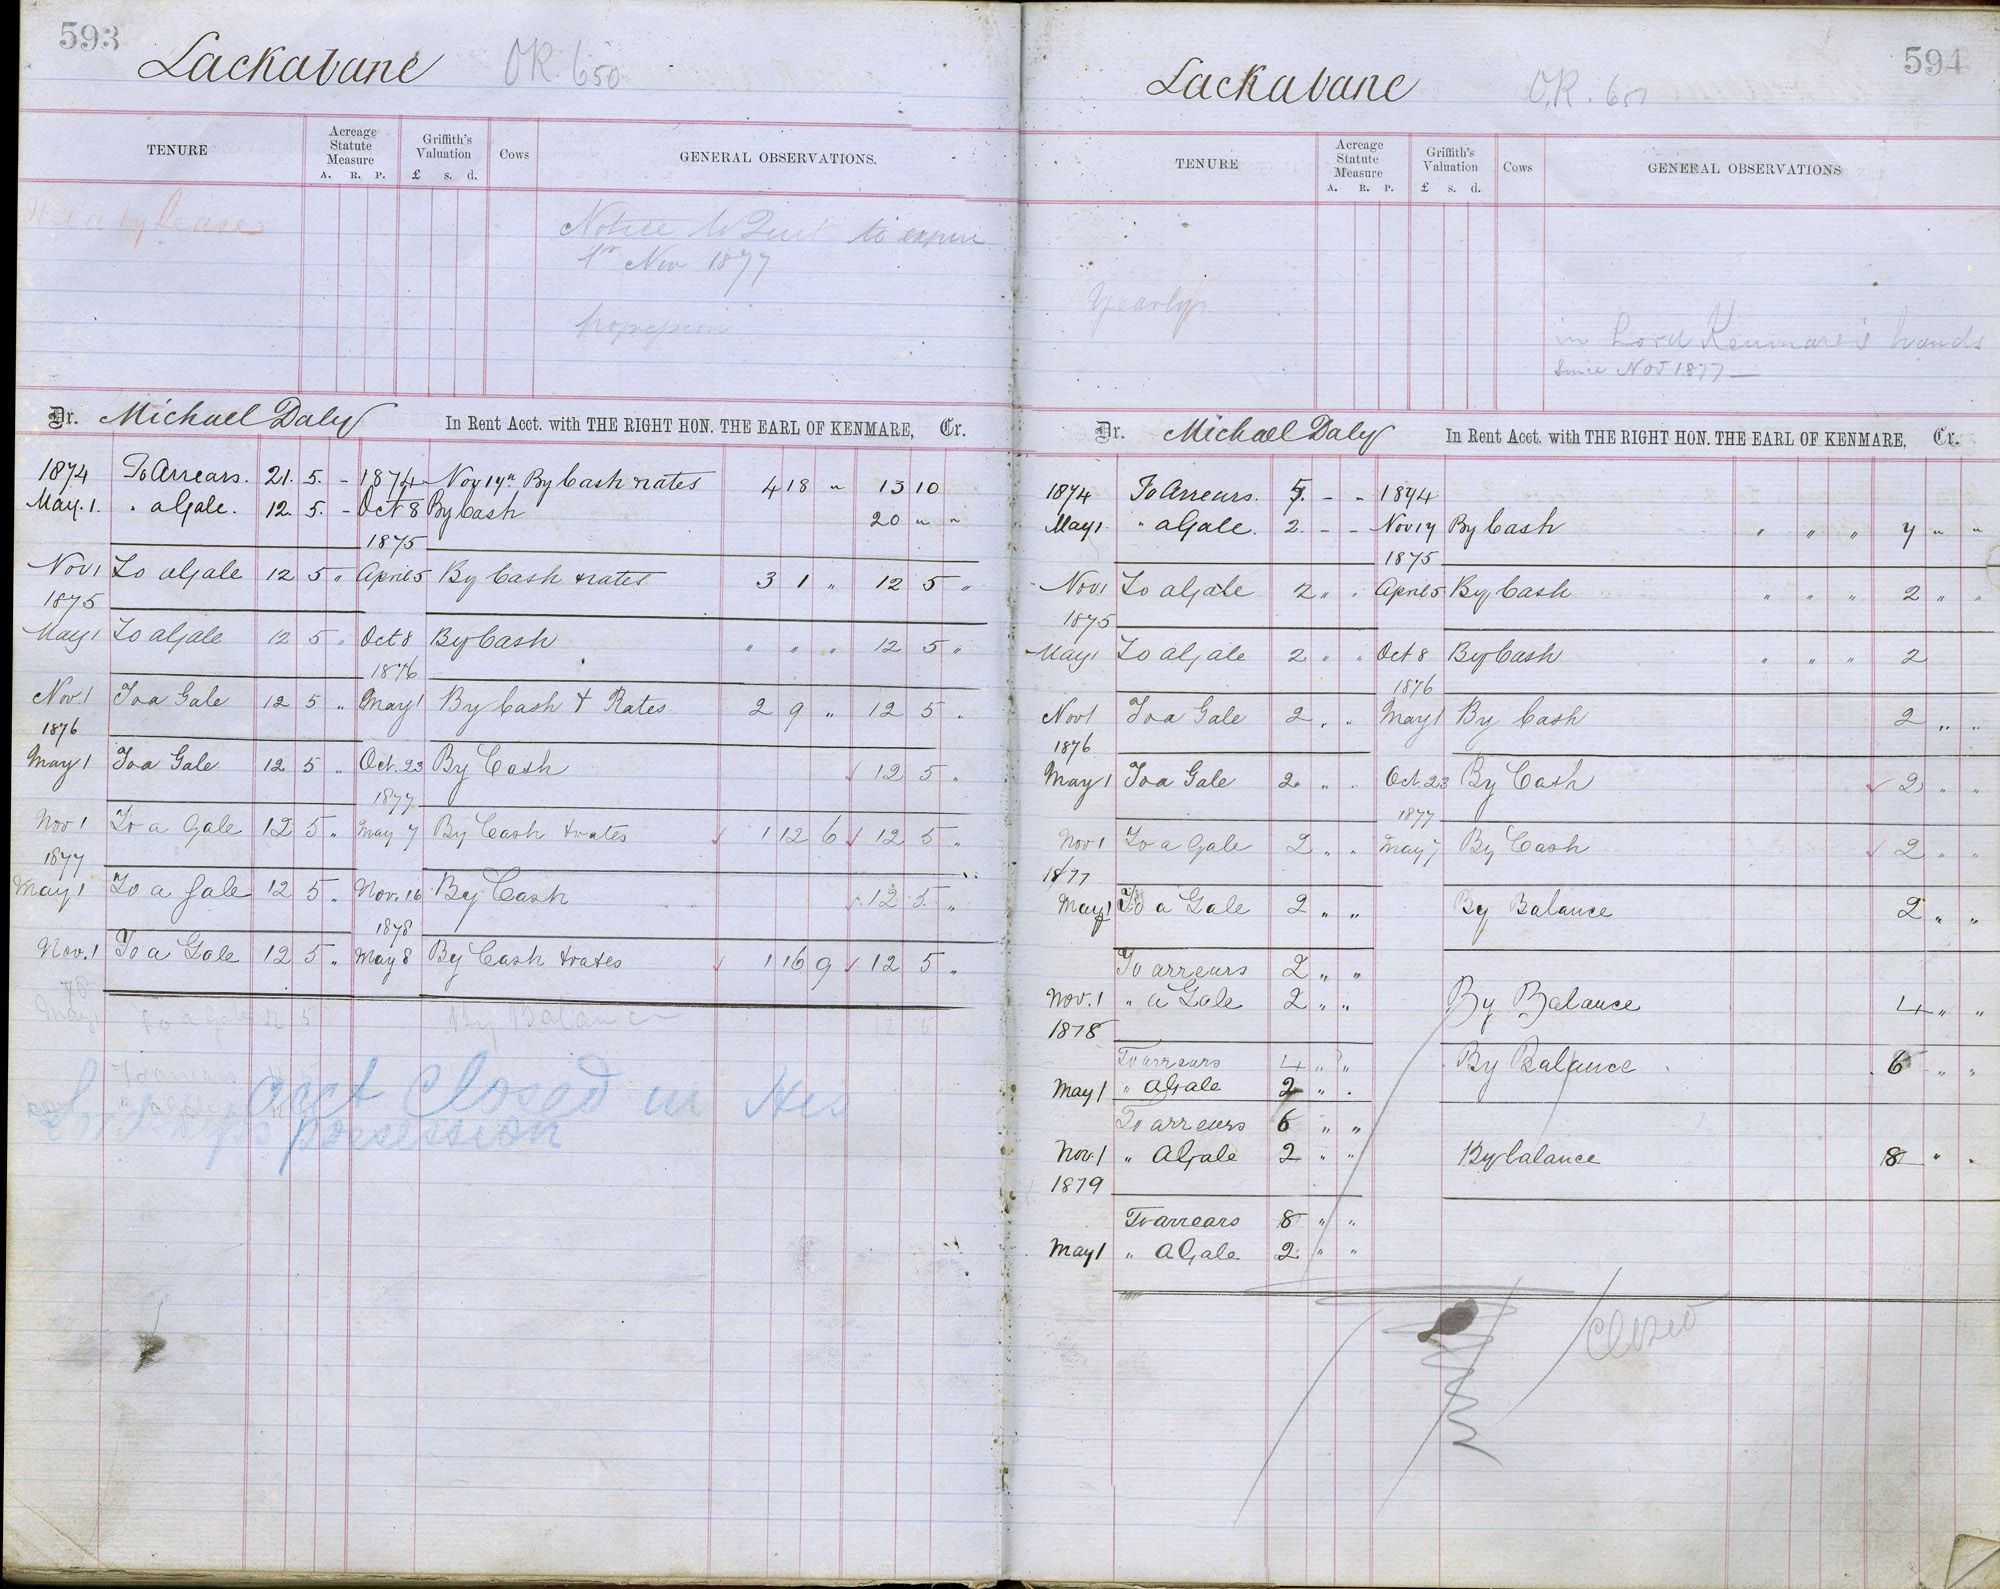 593
Lackabane OR. 650
TENURE
Acreage Statute Measure A. R. P.
Griffith's Valuation £ s. d.
Cows
GENERAL OBSERVATIONS.
Held by lease
Notice to Quit to expire
1st Nov 1877
possession
Dr. Michael Daly In Rent Acct. with THE RIGHT HON. THE EARL OF KENMARE, Cr.
1874 To Arrears. 21. 5. - 1874 Nov 14th By Cash & rates 4 18 " 13 10
May. 1. " a Gale. 12. 5. - Oct 8 By Cash 20 " "
1875
Nov 1 To a Gale 12 5 " April 5 By Cash & rates 3 1 " 12 5 "
1875
May 1 To a Gale 12 5 " Oct 8 By Cash " " " 12 5 "
1876
Nov. 1 To a Gale 12 5 " May 1 By Cash & Rates 2 9 " 12 5 "
1876
May 1 To a Gale 12 5 " Oct. 23 By Cash 12 5 "
1877
Nov 1 To a Gale 12 5 " May 7 By Cash & rates 1 12 6 12 5 "
1877
May 1 To a Gale 12 5 " Nov. 16 By Cash 12 5 "
1878
Nov. 1 To a Gale 12 5 " May 8 By Cash & rates 1 16 9 12 5 "
78
May 1 To a Gale 12 5 By Balance 12 5
To arrears
acct Closed in His
Lordships possession
594
Lackabane O.R. 651
TENURE
Acreage Statute Measure A. R. P.
Griffith's Valuation £ s. d.
Cows
GENERAL OBSERVATIONS
Yearly
in Lord Kenmare's hands
Since Nov 1877 —
Dr. Michael Daly In Rent Acct. with THE RIGHT HON. THE EARL OF KENMARE, Cr.
1874 To Arrears. 5. - - 1874
May 1. " a Gale. 2. - - Nov 14 By Cash " " " 7 " "
1875
Nov 1 To a Gale 2 " " April 5 By Cash " " " 2 " "
1875
May 1 To a Gale 2 " " Oct 8 By Cash " " " 2
1876
Nov 1 To a Gale 2 " " May 1 By Cash 2 " "
1876
May 1 To a Gale 2 " " Oct. 23 By Cash 2 " "
1877
Nov 1 To a Gale 2 " " May 7 By Cash 2 " "
1877
May 1 To a Gale 2 " " By Balance 2 " "
To arrears 2 " "
Nov. 1 " a Gale 2 " " By Balance 4 " "
1878
To arrears 4 " " By Balance 6 " "
May 1 " a Gale 2 " "
To arrears 6 " "
Nov. 1 " a Gale 2 " " By balance 8 " "
1879
To arrears 8 " "
May 1 " a Gale 2 " "
Closed